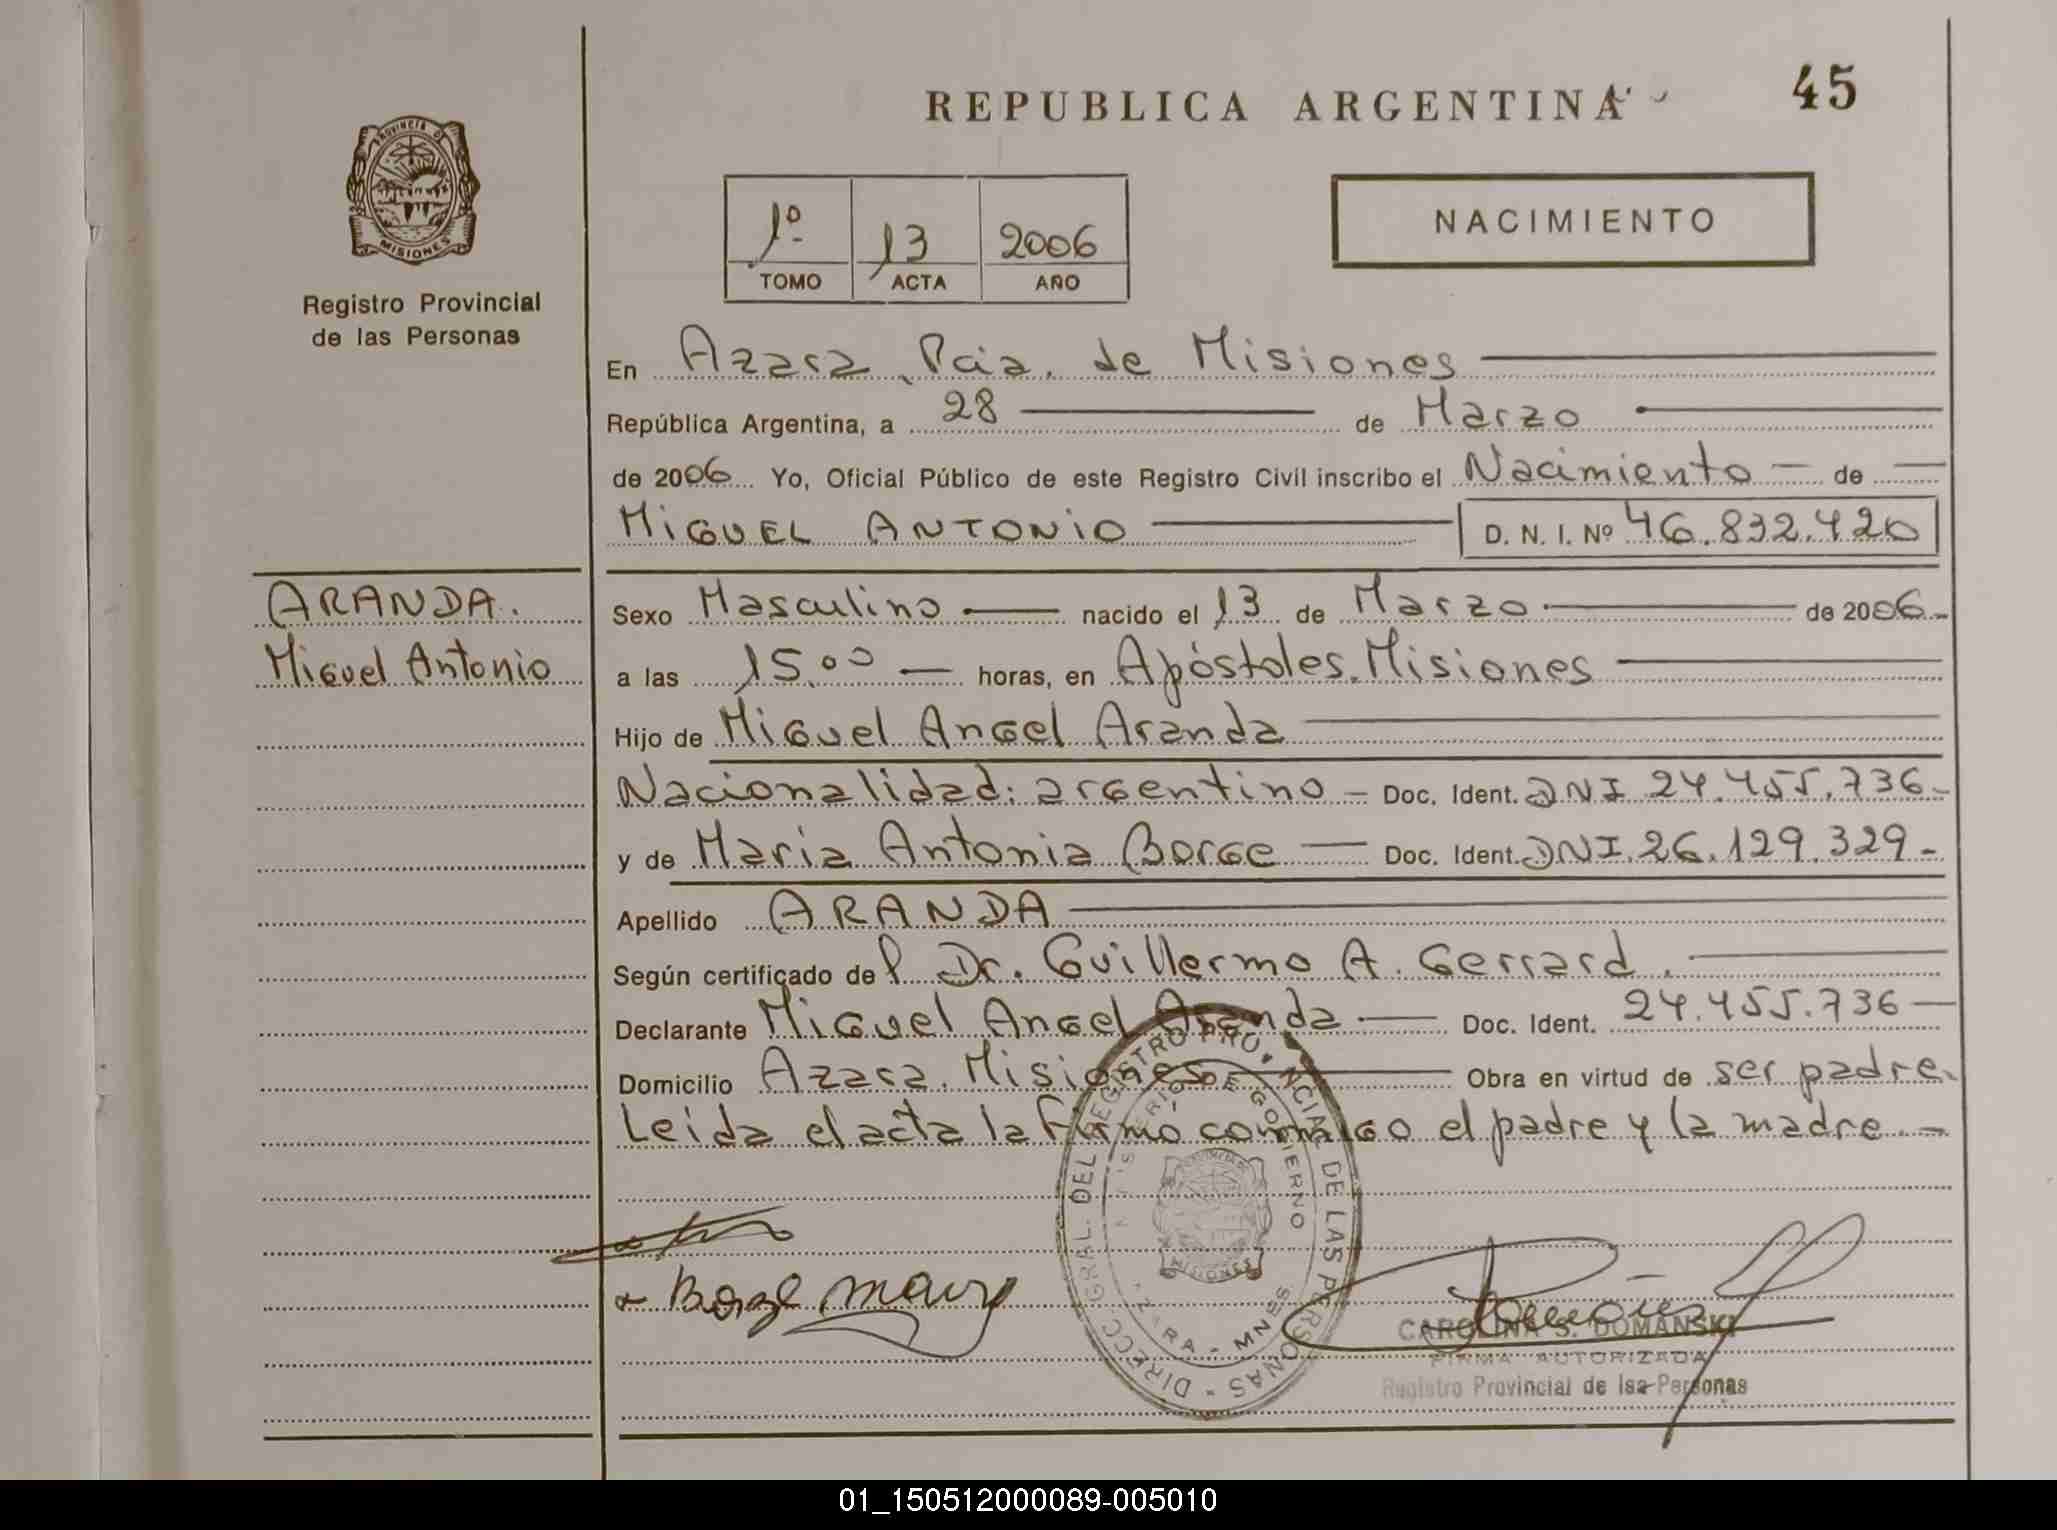 REPUBLICA ARGENTINA
45
PROVINCIA DE
MISIONES
Registro Provincial
de las Personas
1º 13 2006
TOMO ACTA AÑO
NACIMIENTO
En Azara, Pcia. de Misiones
República Argentina, a 28 de Marzo
de 2006 Yo, Oficial Público de este Registro Civil inscribo el Nacimiento de
MIGUEL ANTONIO D. N. I. Nº 46.832.420
ARANDA.
Miguel Antonio
Sexo Masculino nacido el 13 de Marzo de 2006
a las 15.00 horas, en Apóstoles. Misiones
Hijo de Miguel Angel Aranda
Nacionalidad: argentino - Doc. Ident. DNI 24.455.736-
y de Maria Antonia Borge Doc. Ident. DNI.26.129.329-
Apellido ARANDA
Según certificado del Dr. Guillermo A. Gerrard.
Declarante Miguel Angel Aranda Doc. Ident. 24.455.736
Domicilio Azara. Misiones Obra en virtud de ser padre.
Leida el acta la firmó conmigo el padre y la madre.-
DIRECC. GRAL. DEL REGISTRO PROVINCIAL DE LAS PERSONAS
MINISTERIO DE GOBIERNO
AZARA - MNES
MISIONES
CAROLINA S. DOMANSKI
FIRMA AUTORIZADA
Registro Provincial de las Personas
01_150512000089-005010